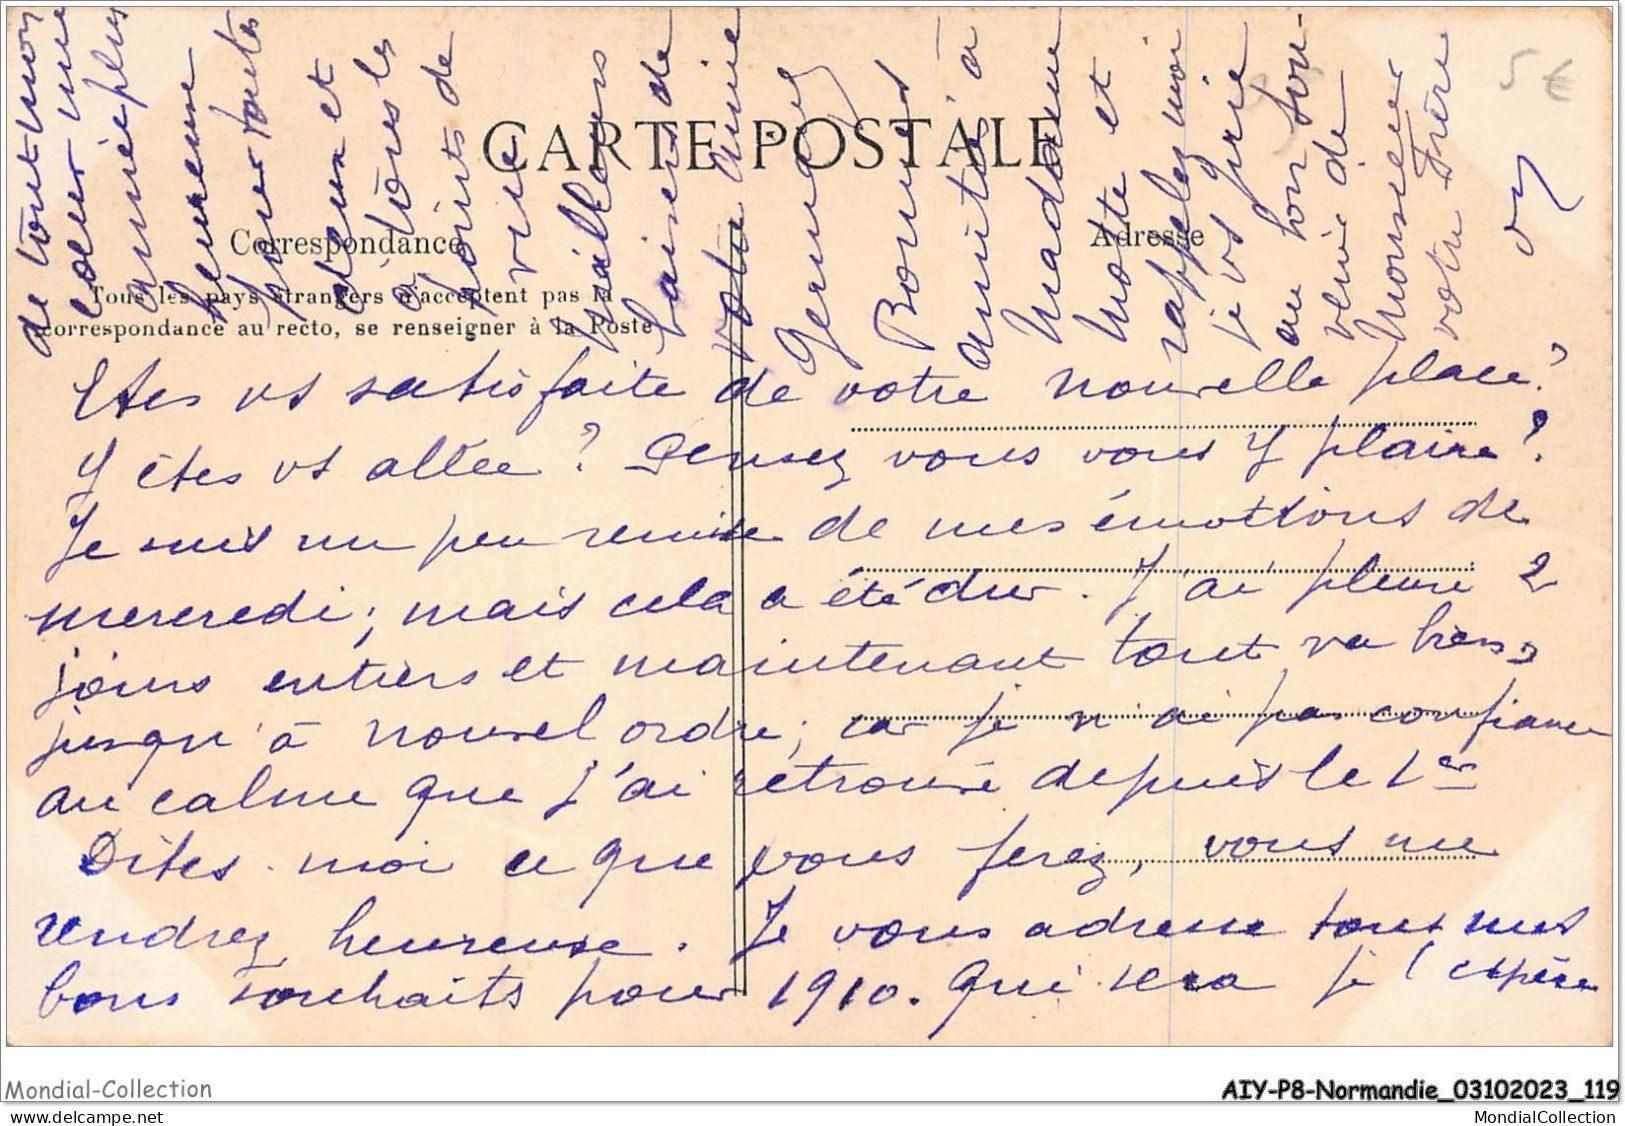 CARTE POSTALE
Correspondance
Adresse
Tous les pays étrangers n'acceptent pas la
correspondance au recto, se renseigner à la Poste
Etes vs satisfaite de votre nouvelle place?
Y êtes vs allée? Pensez vous vous y plaire?
Je suis un peu remise de mes émotions de
mercredi; mais cela a été dur. J'ai pleuré 2
jours entiers et maintenant tout va bien,
jusqu'à nouvel ordre; car je n'ai pas confiance
au calme que j'ai retrouvé depuis le 1er
Dites-moi ce que vous ferez, vous me
rendrez heureuse. Je vous adresse tous mes
bons souhaits pour 1910. Qui sera je l'espère
de tout mon
coeur une
année plus
heureuse
pour toutes
deux et
à tous les
points de
vue
Meilleurs
baisers de
votre amie
Germaine
Bonnes
amitiés à
Madame
Motte et
rappelez moi
je vs prie
au bon sou-
venir de
Monsieur
votre Frère
5 €
Mondial-Collection
AIY-P8-Normandie_03102023_119
www.delcampe.net
MondialCollection